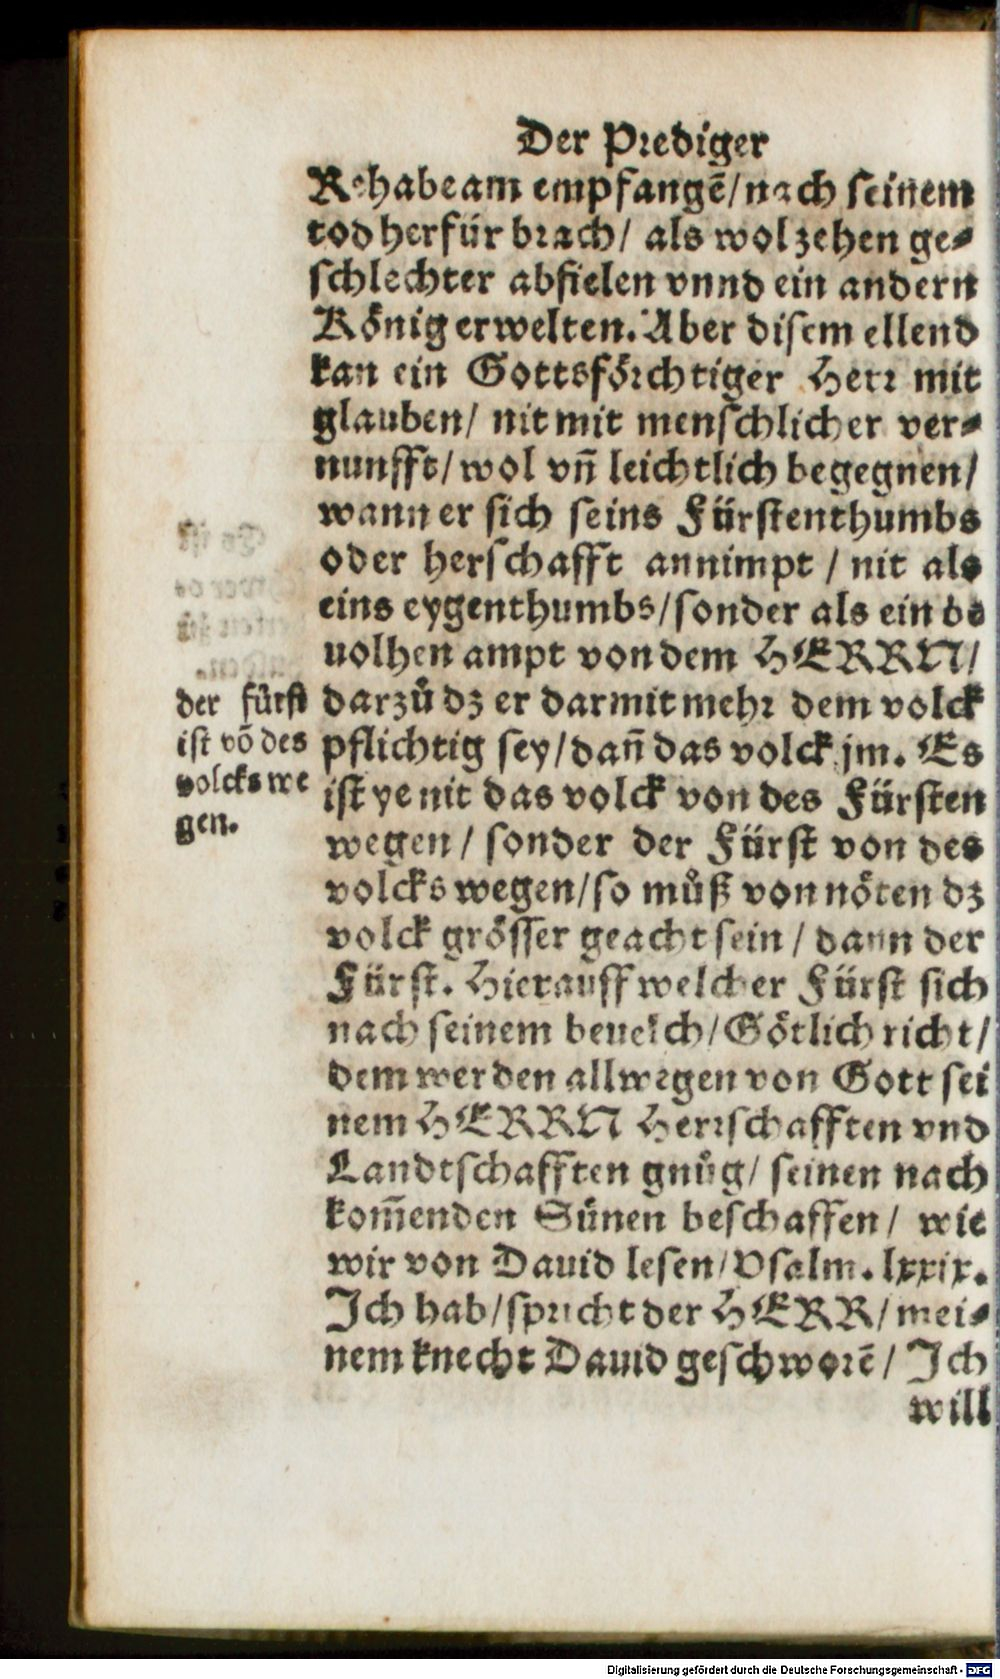 Der Prediger
Rehabeam empfangē/ nach seinem
tod herfür brach/ als wol zehen ge⸗
schlechter abfielen vnnd ein andern
König erwelten. Aber disem ellend
kan ein Gottsförchtiger Herr mit
glauben/ nit mit menschlicher ver⸗
nunfft/ wol vñ leichtlich begegnen/
wann er sich seins Fürstenthumbs
oder herschafft annimpt / nit als
eins eygenthumbs/ sonder als ein be
uolhen ampt von dem HERRN/
darzů dz er darmit mehr dem volck
pflichtig sey/ dañ das volck jm. Es
ist ye nit das volck von des Fürsten
wegen/ sonder der Fürst von des
volcks wegen/ so můß von nöten dz
volck grösser geacht sein / dann der
Fürst. Hierauff welcher Fürst sich
nach seinem beuelch/ Götlich richt/
dem werden allwegen von Gott sei
nem HERRN Herrschafften vnd
Landtschafften gnůg/ seinen nach
kom̄enden Sünen beschaffen/ wie
wir von Dauid lesen/ Psalm. lxxix.
Ich hab/ spricht der HERR/ mei⸗
nem knecht Dauid geschworē/ Ich
will
der fürst
ist vō des
volcks we
gen.
Digitalisierung gefördert durch die Deutsche Forschungsgemeinschaft - DFG